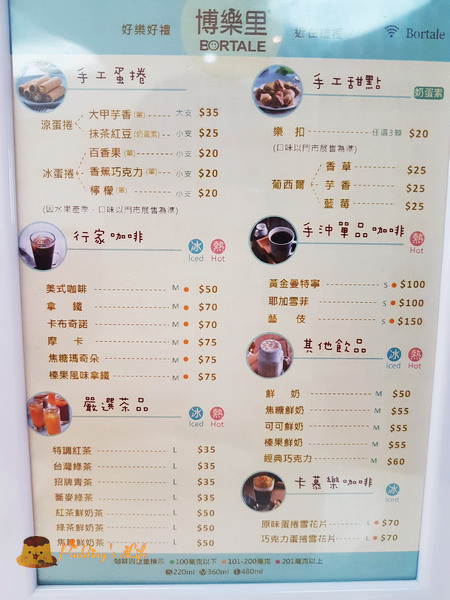 好樂好禮
博樂里
BORTALE
Bortale
手工蛋捲
涼蛋捲
大甲芋香(葷) 大支 $35
抹茶紅豆(奶蛋素) 小支 $25
冰蛋捲
百香果(葷) 小支 $20
香蕉巧克力(葷) 小支 $20
檸檬(葷) 小支 $20
(因水果產季，口味以門市展售為準)
行家咖啡
冰 Iced
熱 Hot
美式咖啡 M $50
拿鐵 M $70
卡布奇諾 M $70
摩卡 M $75
焦糖瑪奇朵 M $75
榛果風味拿鐵 M $75
嚴選茶品
冰 Iced
熱 Hot
特調紅茶 L $35
台灣綠茶 L $35
招牌青茶 L $35
蕎麥綠茶 L $35
紅茶鮮奶茶 L $50
綠茶鮮奶茶 L $50
焦糖鮮奶茶 L $50
手工甜點
奶蛋素
樂扣 任選3顆 $20
(口味以門市展售為準)
葡西爾
香草 $25
芋香 $25
藍莓 $25
手沖單品咖啡
熱 Hot
黃金曼特寧 S $100
耶加雪菲 S $100
藝伎 S $150
其他飲品
冰 Iced
熱 Hot
鮮奶 M $50
焦糖鮮奶 M $55
可可鮮奶 M $55
榛果鮮奶 M $55
經典巧克力 M $60
卡慕樂咖啡
冰 Iced
原味蛋捲雪花片 L $70
巧克力蛋捲雪花片 L $70
100毫克以下 101-200毫克 201毫克以上
S 220ml M 360ml L 480ml